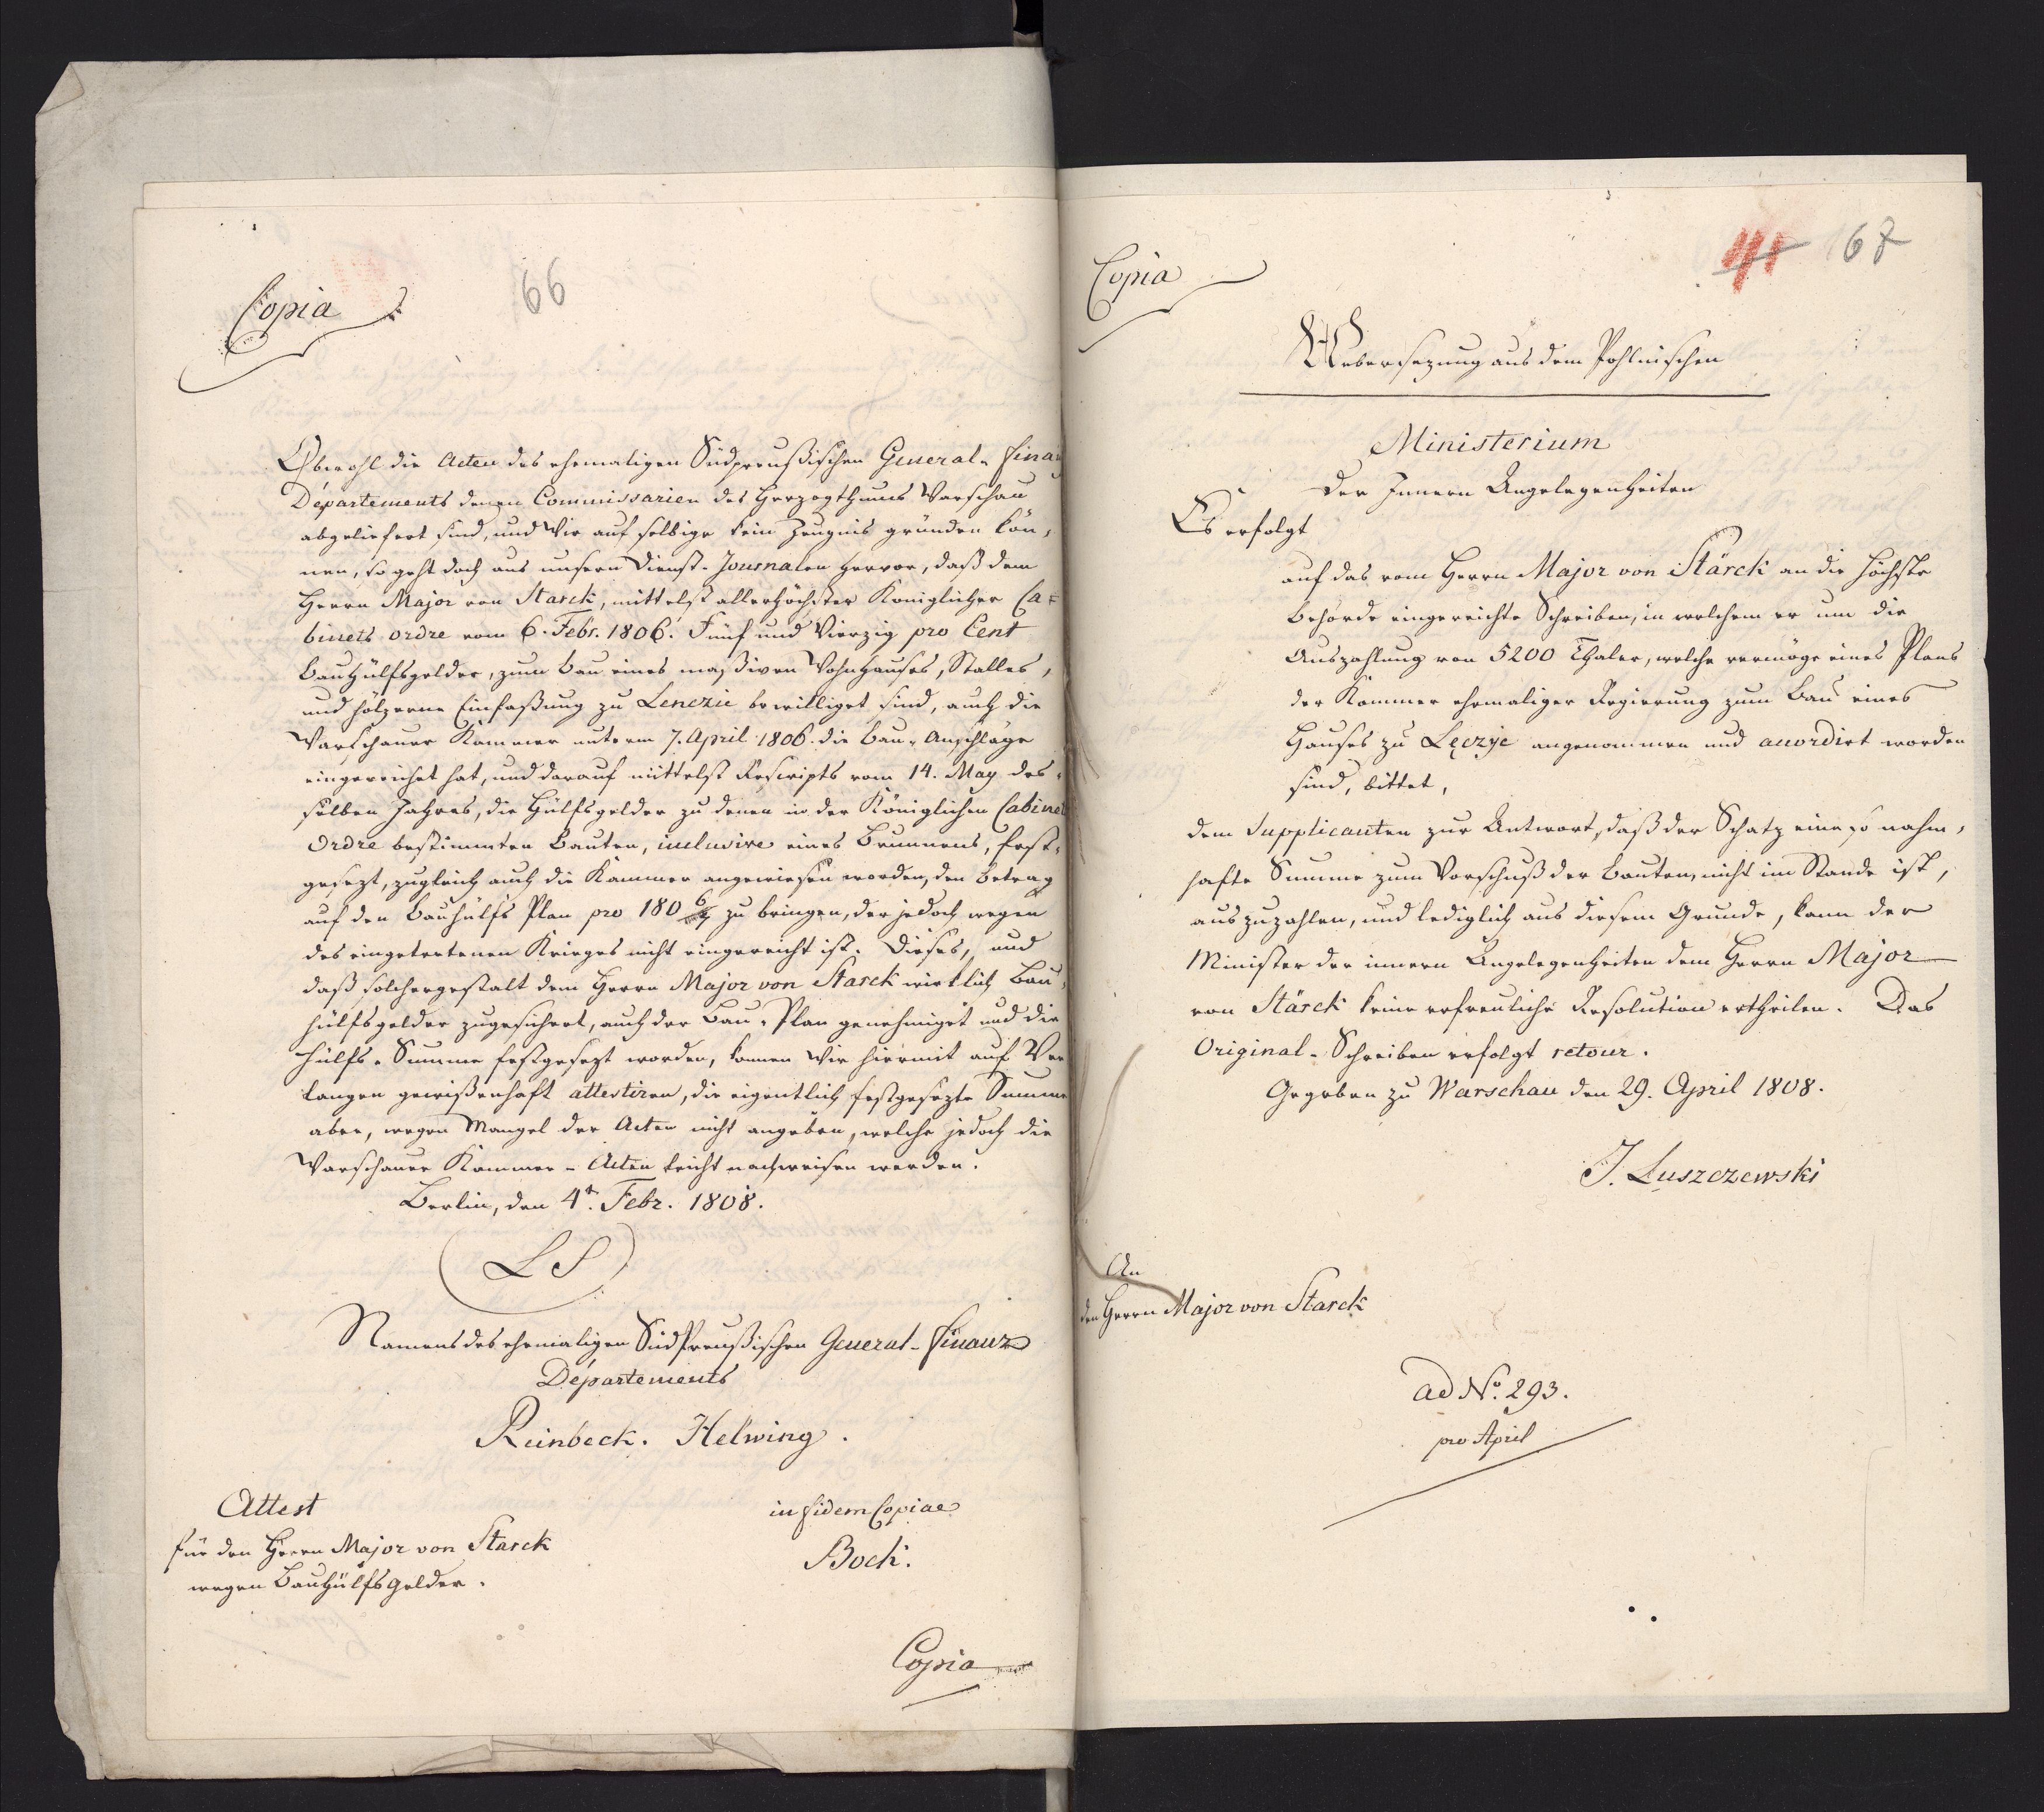 Copia
66
Obwohl die Acten des ehemaligen Südpreußischen General-Finanz
Départements denen Commissarien des Herzogthums Warschau
abgeliefert sind, und Wir auf selbige kein Zeugnis gründen kön-
nen, so geht doch aus unsern Dienst-Journalen hervor, daß dem
Herrn Major von Starck, mittelst allerhöchster Königlicher Ca-
binets ordre vom 6. Febr. 1806. Fünf und Vierzig pro Cent
Bauhülfsgelder, zum Bau eines maßiven Wohnhauses, Stalles,
und hölzerne Einfaßung zu Lenczic bewilliget sind, auch die
Warschauer Kammer unterm 7. April 1806. die Bau-Anschläge
eingereichet hat, und darauf mittelst Rescripts vom 14. May des-
selben Jahres, die Hülfsgelder zu denen in der Königlichen Cabinets
Ordre bestimmten Bauten, inclusive eines Brunnens, fest-
gesezt, zugleich auch die Kammer angewiesen worden, den Betrag
auf den Bauhülfs Plan pro 1806/7 zu bringen, der jedoch wegen
des eingetretenen Krieges nicht eingereicht ist. Dieses, und
daß solchergestalt dem Herrn Major von Starck wirklich Bau-
hülfsgelder zugesichert, auch der Bau-Plan genehmiget und die
Hülfs-Summe festgesezt worden, können Wir hiermit auf Ver-
langen gewißenhaft attestiren, die eigentlich festgesezte Summe
aber, wegen Mangel der Acten nicht angeben, welche jedoch die
Warschauer Kammer-Acten leicht nachweisen werden.
Berlin, den 4t. Febr. 1808.
LS
Namens des ehemaligen SüdPreußischen General-Finanz
Départements
Reinbeck. Helwing.
Attest
für den Herrn Major von Starck
wegen Bauhülfsgelder.
in fidem Copiae
Bock.
Copia
Copia
41 67
Uebersezung aus dem Pohlnischen
Ministerium
der Innern Angelegenheiten
Es erfolgt
auf das vom Herrn Major von Stärck an die höchste
Behörde eingereichte Schreiben, in welchem er um die
Auszahlung von 5200 Thaler, welche vermöge eines Plans
der Kammer ehemaliger Regierung zum Bau eines
Hauses zu Lęczyc angenommen und accordirt worden
sind, bittet,
dem Supplicanten zur Antwort, daß der Schatz eine so nahm-
hafte Summe zum Vorschuß der Bauten, nicht im Stande ist,
auszuzahlen, und lediglich aus diesem Grunde, kann der
Minister der innern Angelegenheiten dem Herrn Major
von Stärck keine erfreuliche Resolution ertheilen. Das
Original-Schreiben erfolgt retour.
Gegeben zu Warschau den 29. April 1808.
J. Łuszczewski
An
den Herrn Major von Starck
ad No. 293.
pro April